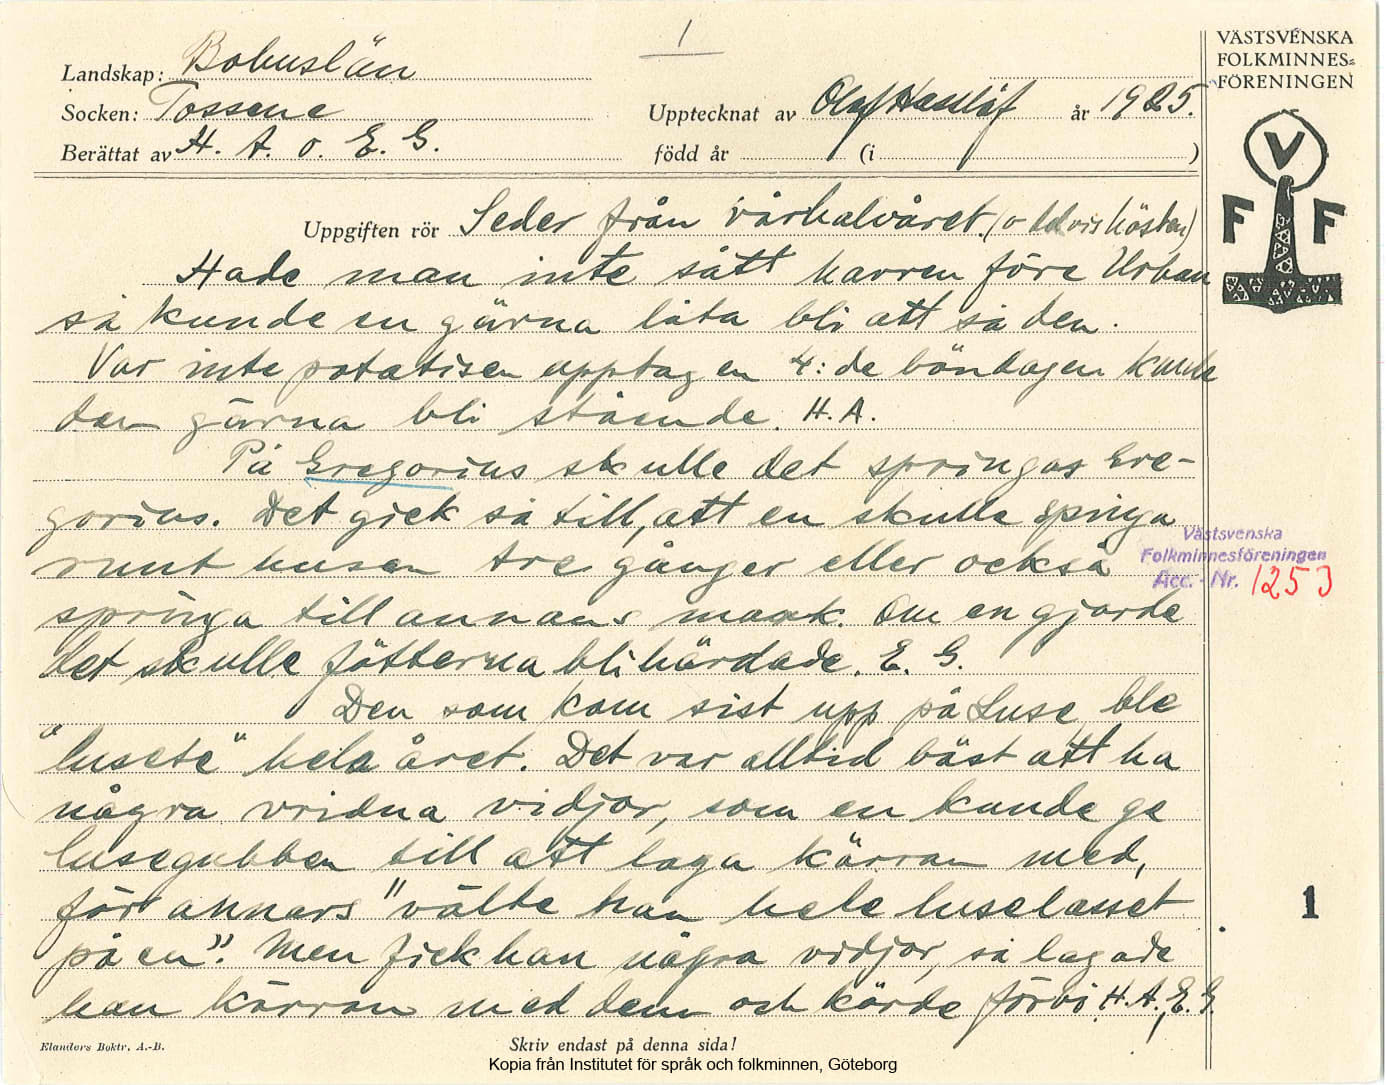 1
Landskap: Bohuslän
Socken: Tossene
Berättat av H. A. o. E. G.
Upptecknat av Olof Hasslöf år 1925.
född år (i )
VÄSTSVENSKA
FOLKMINNES=
FÖRENINGEN
V
F F
Uppgiften rör Seder från vårhalvåret. (o delvis hösten)
Hade man inte sått havren före Urban
så kunde en gärna låta bli att så den.
Var inte potatisen upptagen 4:de böndagen kunde
den gärna bli stående. H. A.
På Gregorius skulle det springas Gre-
gorius. Det gick så till, att en skulle springa
runt husen tre gånger eller också
springa till annans mark. Om en gjorde
det skulle fötterna bli härdade. E. G.
Den som kom sist upp på Luse ble
"lusete" hela året. Det var alltid bäst att ha
några vridna vidjor, som en kunde ge
lusegubben till att laga kärran med,
för annars "välte han hele luselasset
på en". Men fick han några vidjor, så lagade
han kärran med dem och körde förbi. H. A., E. G.
Västsvenska
Folkminnesföreningen
Acc. - Nr. 1253
1
Elanders Boktr. A.-B.
Skriv endast på denna sida!
Kopia från Institutet för språk och folkminnen, Göteborg